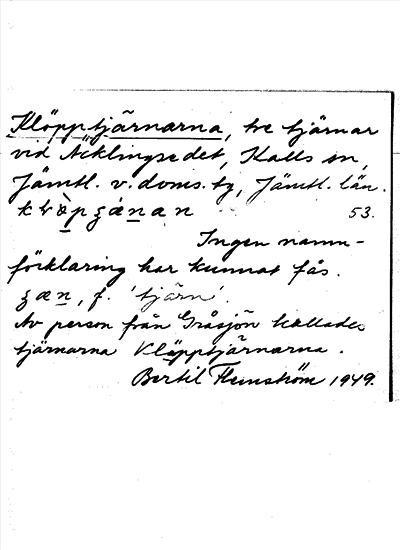 Klöpptjärnarna, tre tjärnar
vid Äcklingsedet, Kalls sn,
Jämtl. v. doms. tg, Jämtl. län.
53.
Ingen namn-
förklaring har kunnat fås.
ʒæn, f. 'tjärn'.
Av person från Gråsjön kallades
tjärnarna Klöpptjärnarna.
Bertil Flemström 1949.